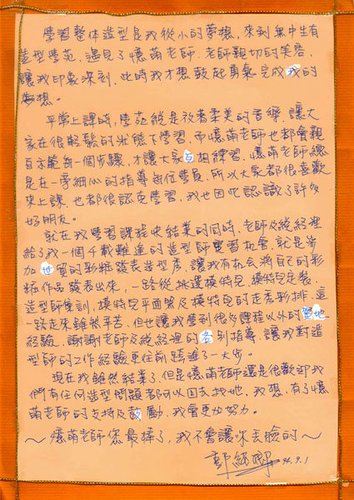 學習整体造型是我從小的夢想,來到無中生有
造型學苑,遇見了憶萌老師,老師親切的笑容,
讓我印象深刻,此時我才想鼓起勇氣完成我的
夢想。
平常上課時,學苑總是放著柔美的音樂,讓大
家在很輕鬆的狀態下學習,而憶萌老師也都會親
自示範每一個步驟,才讓大家互相練習,憶萌老師總
是在一旁細心的指導每位學員,所以大家都很喜歡
來上課,也都很認真學習,我也因此認識了許多
好朋友。
就在我學習課程快結業的同時,老師及總經理
給了我一個千載難逢的造型師實習機會,就是參
加世貿的彩粧發表造型秀,讓我有機會將自己的彩
粧作品發表出來,一路從挑選模特兒,模特兒定裝,
造型師集訓,模特兒平面照及模特兒的走秀彩排,這
一路走來雖然辛苦,但也讓我學到很多課程以外的實地
經驗,謝謝老師及總經理的各別指導,讓我對造
型師的工作經驗更往前跨進了一大步。
現在我雖然結業了,但是憶萌老師還是很歡迎我
們有任何造型問題都可以回去找她,我想,有了憶
萌老師的支持及鼓勵,我會更加努力。
~憶萌老師您最棒了,我不會讓你丟臉的~
94.9.1